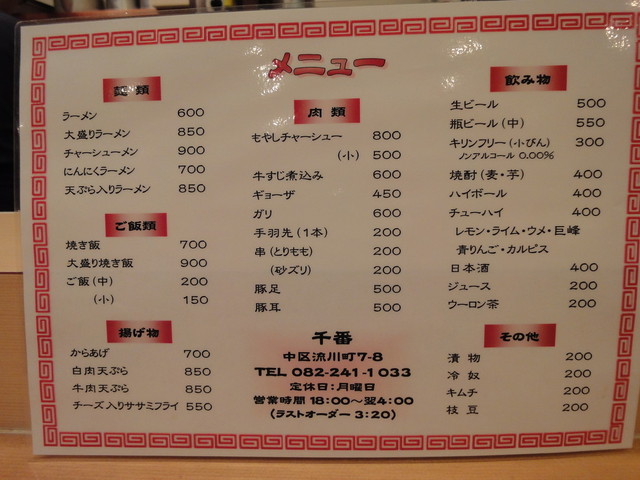 メニュー
麺類
ラーメン 600
大盛りラーメン 850
チャーシューメン 900
にんにくラーメン 700
天ぷら入りラーメン 850
ご飯類
焼き飯 700
大盛り焼き飯 900
ご飯(中) 200
(小) 150
揚げ物
からあげ 700
白肉天ぷら 850
牛肉天ぷら 850
チーズ入りササミフライ 550
肉類
もやしチャーシュー 800
(小) 500
牛すじ煮込み 600
ギョーザ 450
ガリ 600
手羽先(1本) 200
串(とりもも) 200
(砂ズリ) 200
豚足 500
豚耳 500
千番
中区流川町7-8
TEL 082-241-1033
定休日:月曜日
営業時間 18:00〜翌4:00
(ラストオーダー 3:20)
飲み物
生ビール 500
瓶ビール(中) 550
キリンフリー(小びん) 300
ノンアルコール 0.00%
焼酎(麦・芋) 400
ハイボール 400
チューハイ 400
レモン・ライム・ウメ・巨峰
青りんご・カルピス
日本酒 400
ジュース 200
ウーロン茶 200
その他
漬物 200
冷奴 200
キムチ 200
枝豆 200